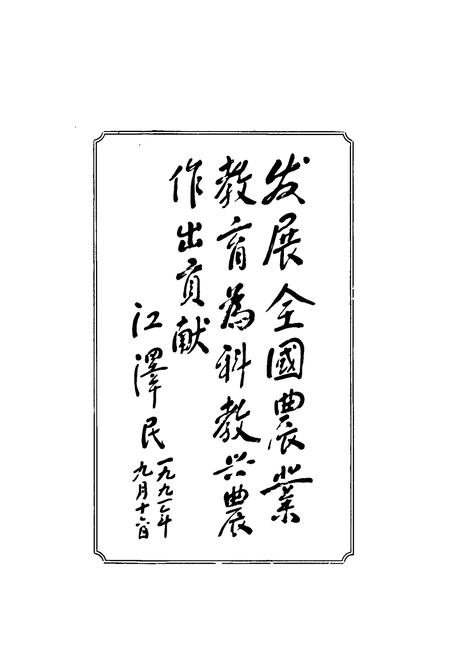 发展全國農業
教育為科教兴農
作出貢献
江澤民
一九九一年
九月十六日